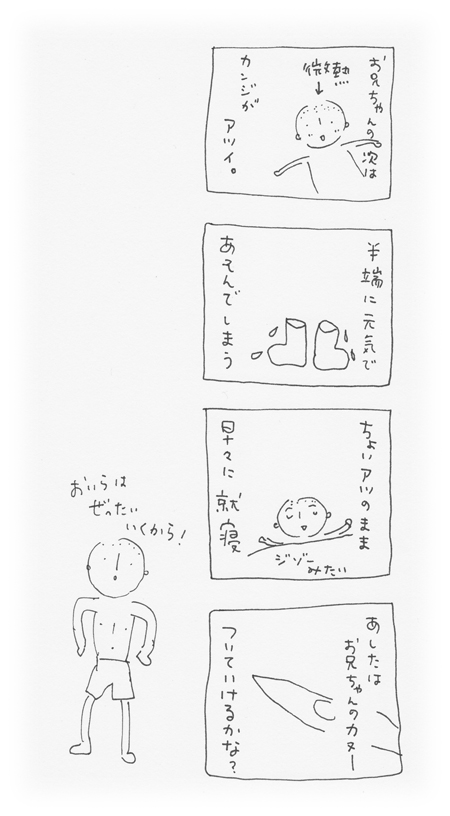 お兄ちゃんの次は
微熱
カンジが
アツイ。
半端に元気で
あそんでしまう
ちょいアツのまま
早々に就寝
ジゾー
みたい
あしたは
お兄ちゃんのカヌー
ついていけるかな?
おいらは
ぜったい
いくから!